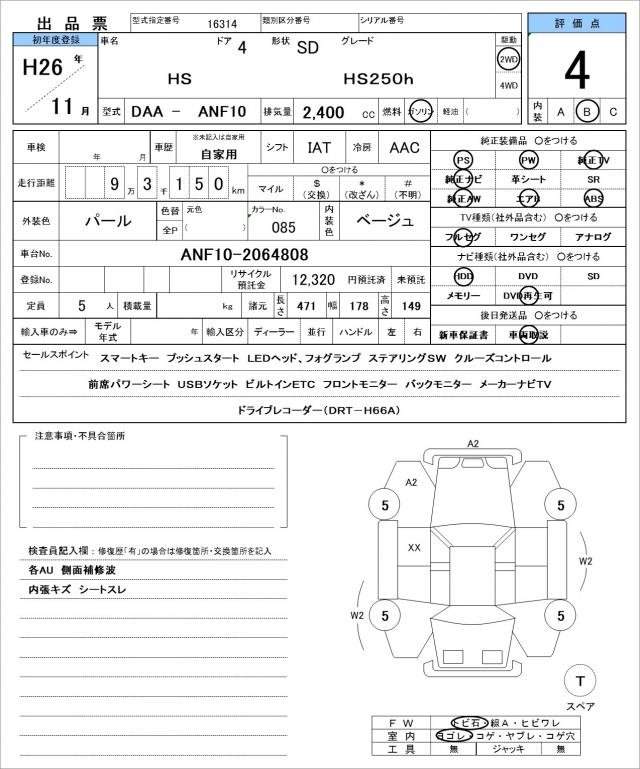 出品票 型式指定番号 16314 類別区分番号 シリアル番号 評価点
初年度登録 車名 ドア 4 形状 SD グレード 駆動
H26 年 HS HS250h 2WD 4
4WD
11 月 型式 DAA － ANF10 排気量 2,400 cc 燃料 ガソリン 軽油 ( ) 内装 A B C
車検 年 月 車歴 ※未記入は自家用 自家用 シフト IAT 冷房 AAC 純正装備品 〇をつける
PS PW 純正TV
走行距離 9 万 3 千 1 5 0 km マイル 〇をつける $ (交換) * (改ざん) # (不明) 純正ナビ 革シート SR
純正AW エアB ABS
外装色 パール 色替 元色 全P ( ) カラーNo. 085 内装色 ベージュ TV種類(社外品含む) 〇をつける
フルセグ ワンセグ アナログ
車台No. ANF10-2064808 ナビ種類(社外品含む) 〇をつける
登録No. リサイクル預託金 12,320 円預託済 未預託 HDD DVD SD
定員 5 人 積載量 kg 諸元 長さ 471 幅 178 高さ 149 メモリー DVD再生可
後日発送品 〇をつける
輸入車のみ⇒ モデル年式 年 輸入区分 ディーラー 並行 ハンドル 左 右 新車保証書 車両取説
セールスポイント スマートキー プッシュスタート LEDヘッド、フォグランプ ステアリングSW クルーズコントロール
前席パワーシート USBソケット ビルトインETC フロントモニター バックモニター メーカーナビTV
ドライブレコーダー(DRT-H66A)
注意事項・不具合箇所
検査員記入欄 : 修復歴「有」の場合は修復箇所・交換箇所を記入
各AU 側面補修波
内張キズ シートスレ
A2
A2
5 5
XX
W2
W2
5 5
T
スペア
FW トビ石・線A・ヒビワレ
室内 ヨゴレ・コゲ・ヤブレ・コゲ穴
工具 無 ジャッキ 無